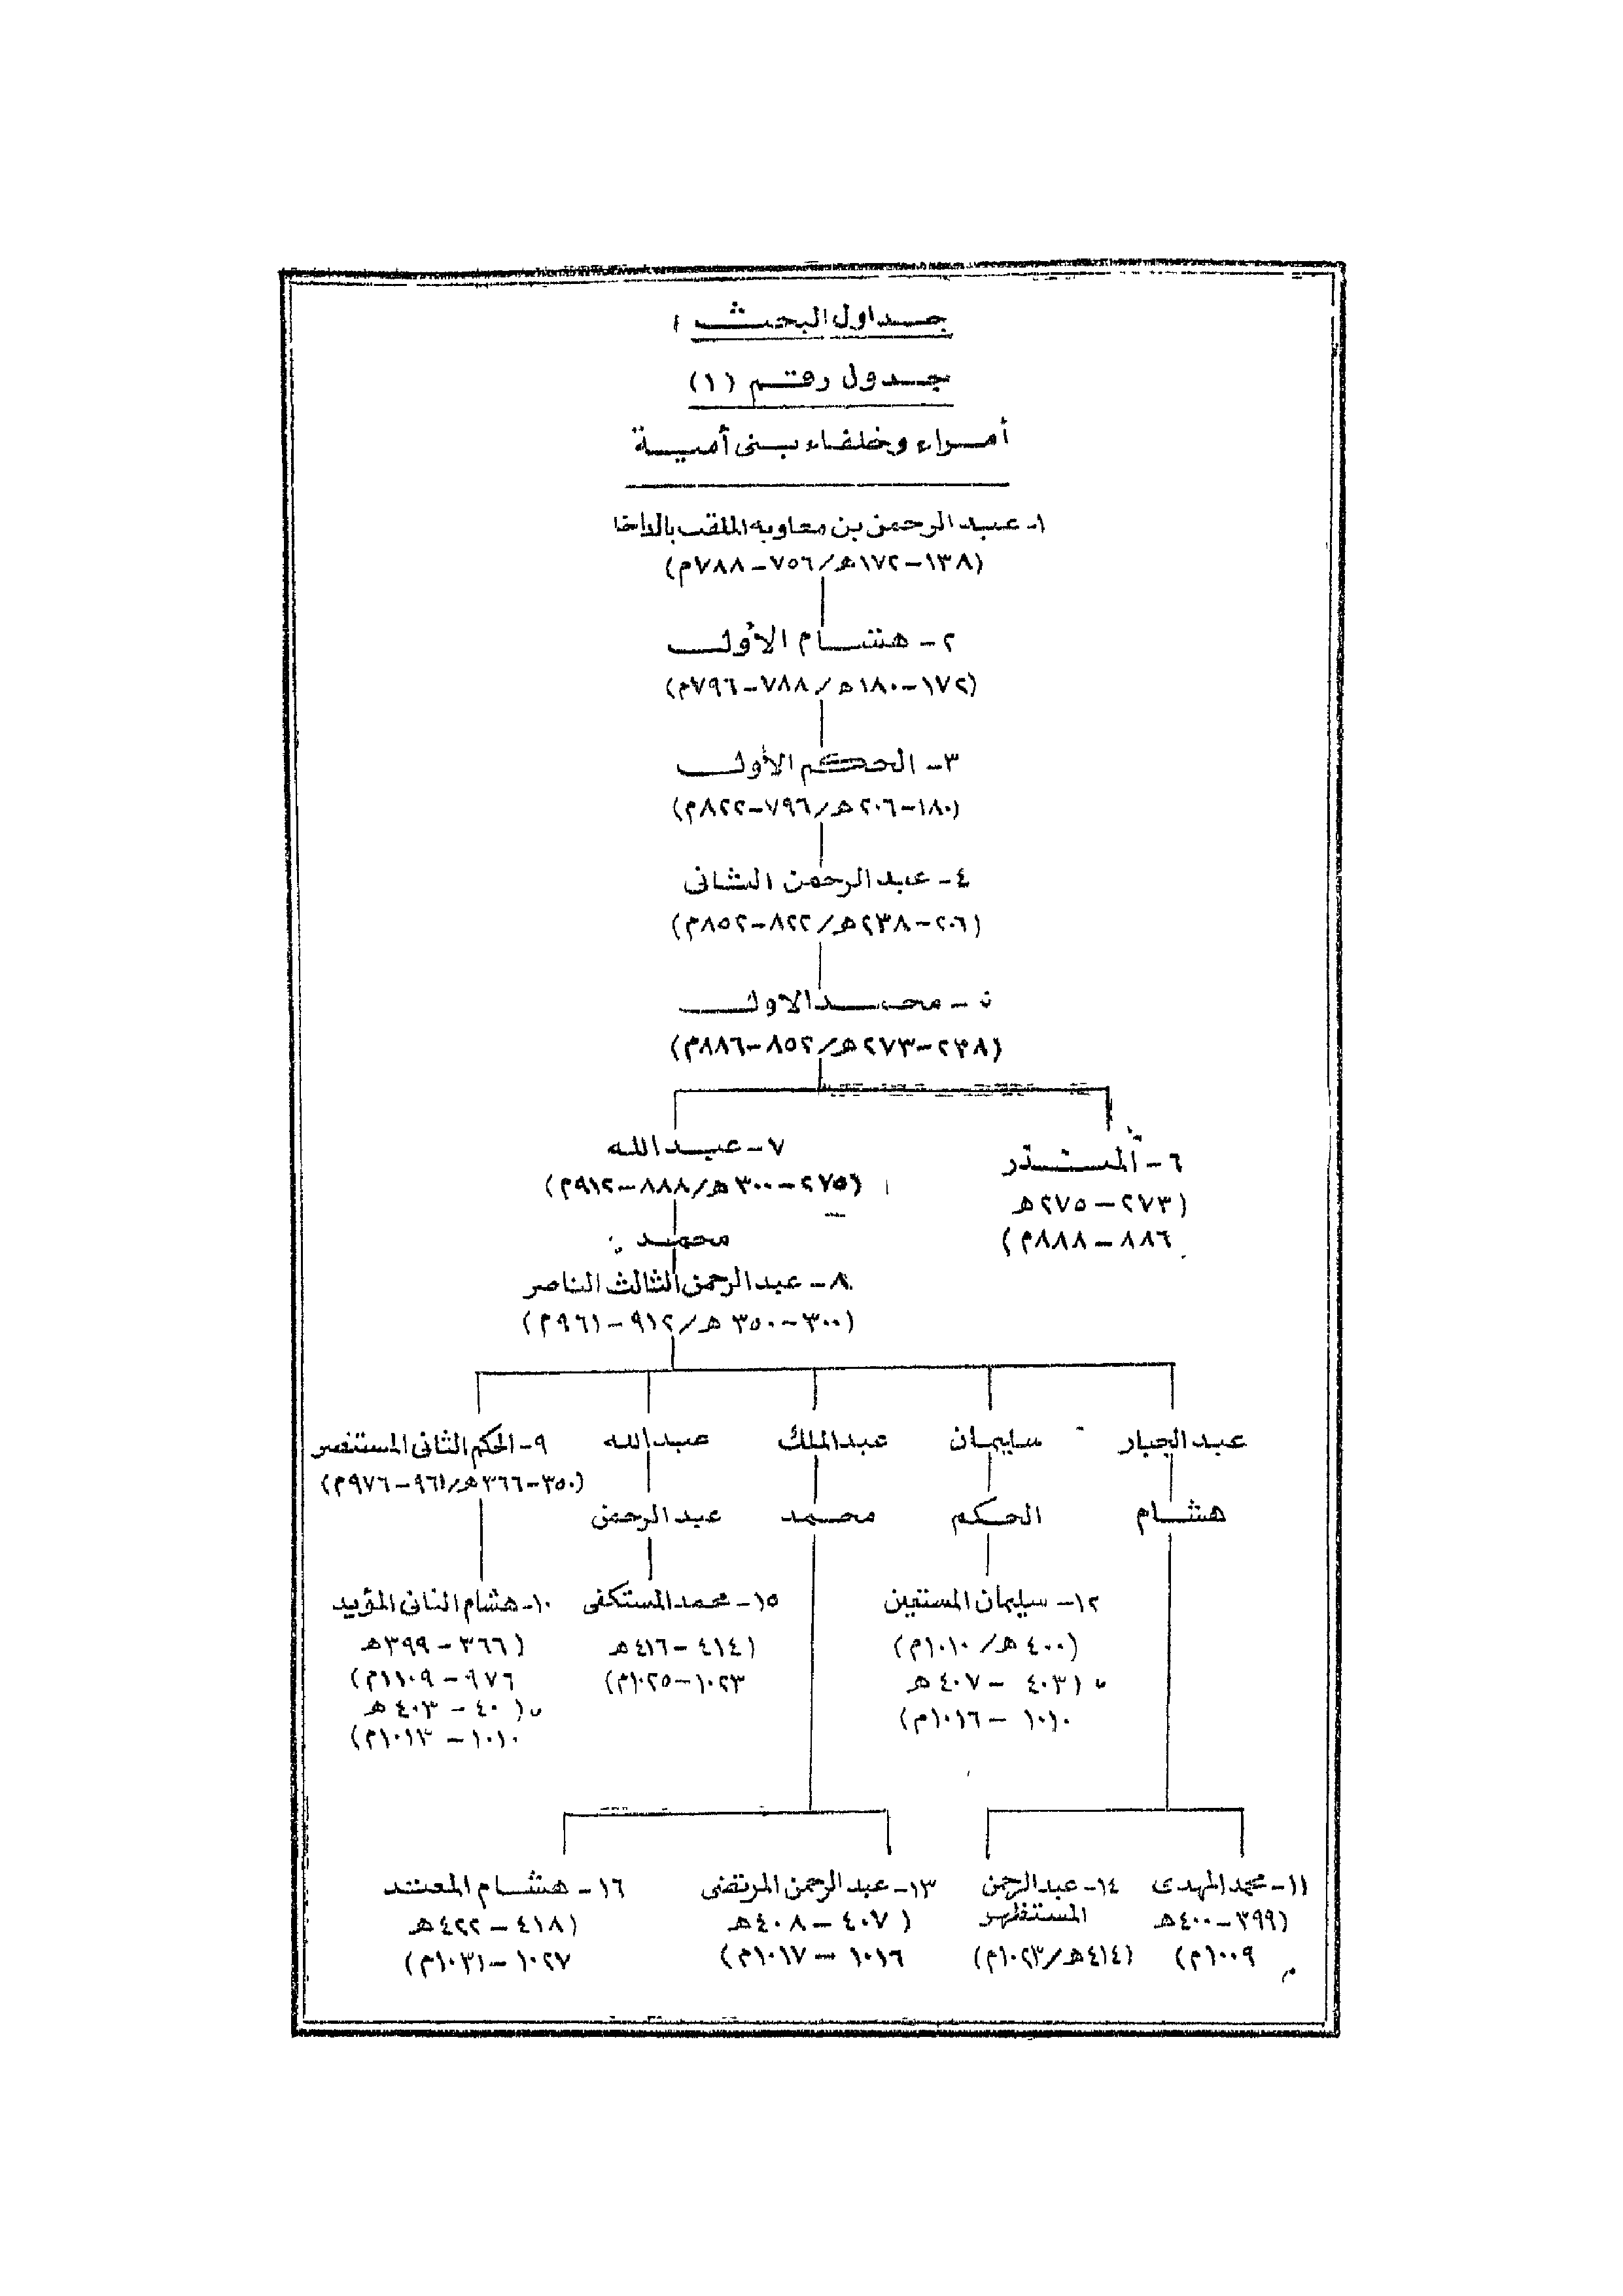 جداول البحث :
جدول رقم (١)
أمراء وخلفاء بنى أمية
١- عبد الرحمن بن معاويه الملقب بالداخل
(١٣٨-١٧٢هـ/٧٥٦-٧٨٨م)
٢- هشام الأول
(١٧٢-١٨٠هـ/٧٨٨-٧٩٦م)
٣- الحكم الأول
(١٨٠-٢٠٦هـ/٧٩٦-٨٢٢م)
٤- عبد الرحمن الثانى
(٢٠٦-٢٣٨هـ/٨٢٢-٨٥٢م)
٥- محمد الاول
(٢٣٨-٢٧٣هـ/٨٥٢-٨٨٦م)
٦- المنذر
(٢٧٣-٢٧٥هـ
٨٨٦-٨٨٨م)
٧- عبد الله
(٢٧٥-٣٠٠هـ/٨٨٨-٩١٢م)
محمد
٨- عبد الرحمن الثالث الناصر
(٣٠٠-٣٥٠هـ/٩١٢-٩٦١م)
عبد الجبار
سليمان
عبد الملك
عبد الله
٩- الحكم الثانى المستنصر
(٣٥٠-٣٦٦هـ/٩٦١-٩٧٦م)
هشام
الحكم
محمد
عبد الرحمن
١٢- سليمان المستعين
(٤٠٠هـ/١٠١٠م)
و (٤٠٣-٤٠٧هـ
١٠١٠-١٠١٦م)
١٥- محمد المستكفى
(٤١٤-٤١٦هـ
١٠٢٣-١٠٢٥م)
١٠- هشام الثانى المؤيد
(٣٦٦-٣٩٩هـ
٩٧٦-١١٠٩م)
و (٤٠-٤٠٣هـ
١٠١٠-١٠١٣م)
١١- محمد المهدى
(٣٩٩-٤٠٠هـ
١٠٠٩م)
١٤- عبد الرحمن
المستظهر
(٤١٤هـ/١٠٢٣م)
١٣- عبد الرحمن المرتضى
(٤٠٧-٤٠٨هـ
١٠١٦-١٠١٧م)
١٦- هشام المعتد
(٤١٨-٤٢٢هـ
١٠٢٧-١٠٣١م)